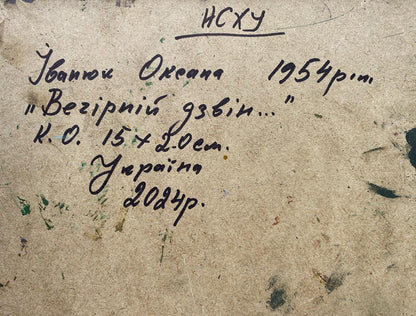 НСХУ
Іванюк Оксана 1954р.н.
„Вечірній дзвін..."
К. О. 15 х 20см.
Україна
2024р.